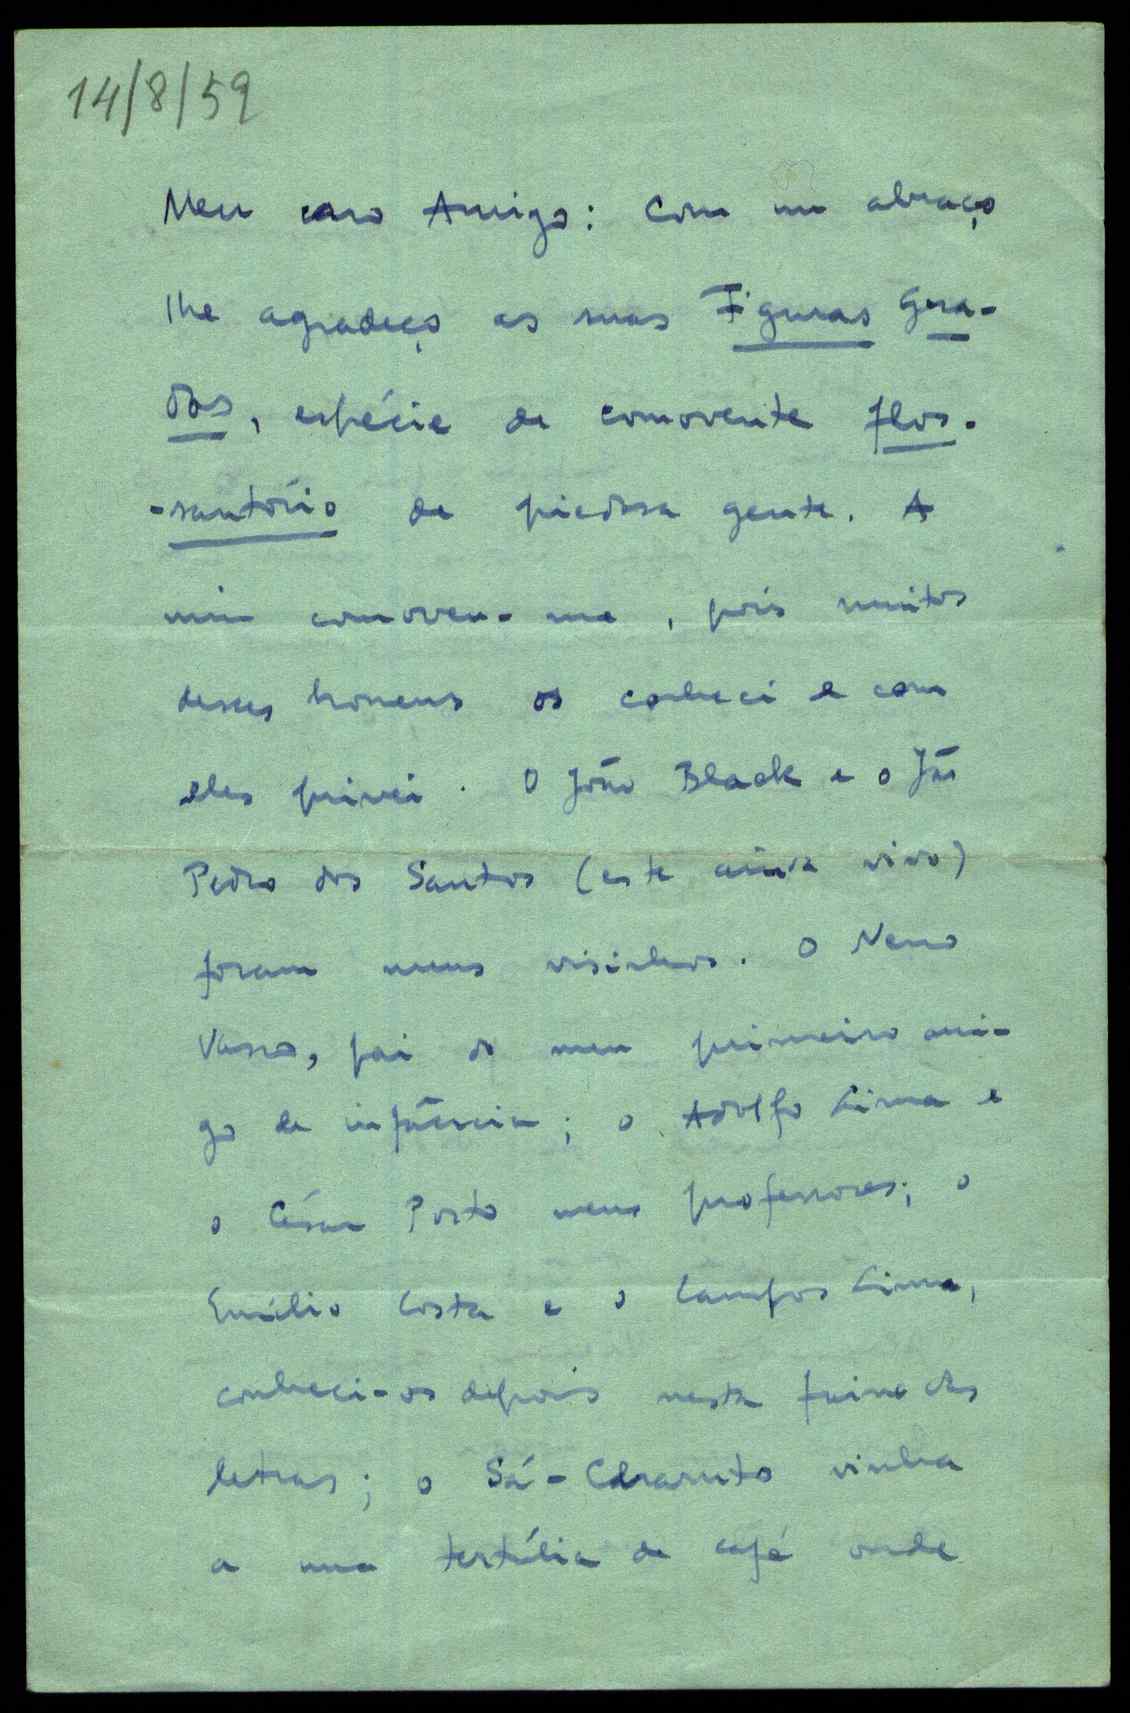 14/8/59
Meu caro Amigo: Com um abraço
lhe agradeço as suas Figuras Gera-
das, espécie de comovente flos-
-santório de piedosa gente. A
mim comoveu-me, pois muitos
desses homens os conheci e com
eles privei. O João Black e o
Pedro dos Santos (este ainda vivo)
foram meus visinhos. O Neno
Vasco, pai do meu primeiro ami-
go de infância; o Adolfo Lima e
o César Porto meus professores; o
Emílio Costa e o Campos Lima,
conheci-os depois nesta faina das
letras; o Sá-Charuto vinha
a uma tertúlia de café onde